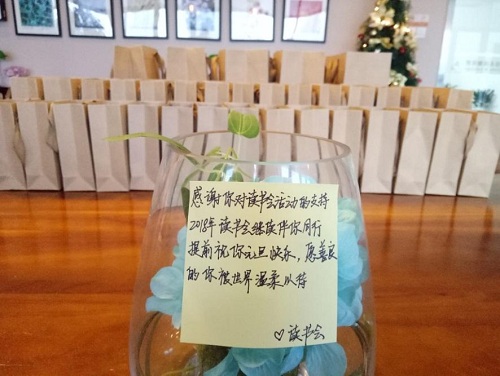 感谢你对读书会活动的支持
2018年读书会继续伴你同行
提前祝你元旦快乐，愿善良
的你被世界温柔以待
♡读书会